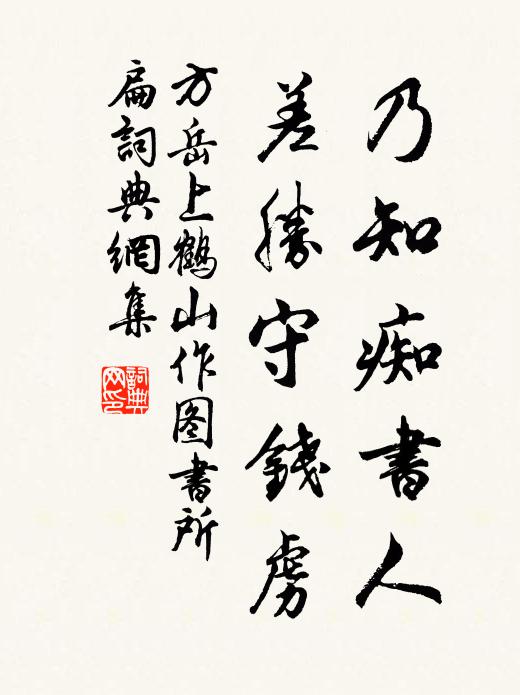 乃知痴書人
差勝守錢虜
方岳上鶴山作图書所
扁詞典網集
詞典网印